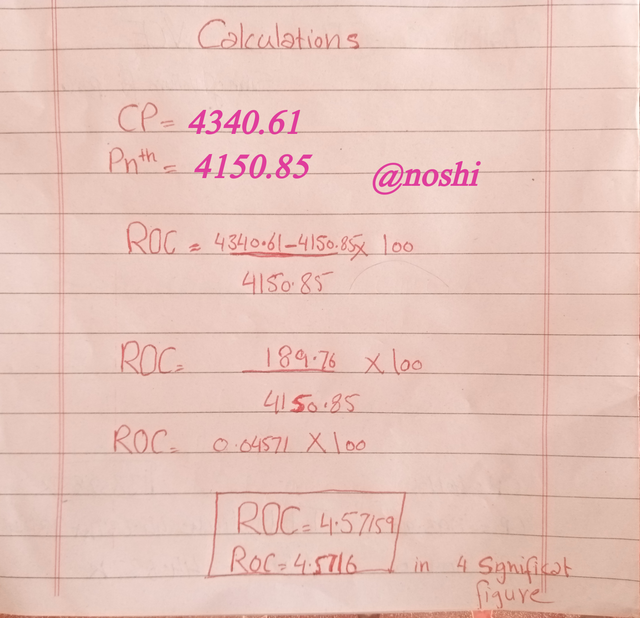 Calculations
CP = 4340.61
Pnᵗʰ = 4150.85
@noshi
ROC = 4340.61-4150.85 x 100
4150.85
ROC = 189.76 X 100
4150.85
ROC = 0.04571 X 100
ROC = 4.57159
ROC = 4.5716 in 4 Significat
figure